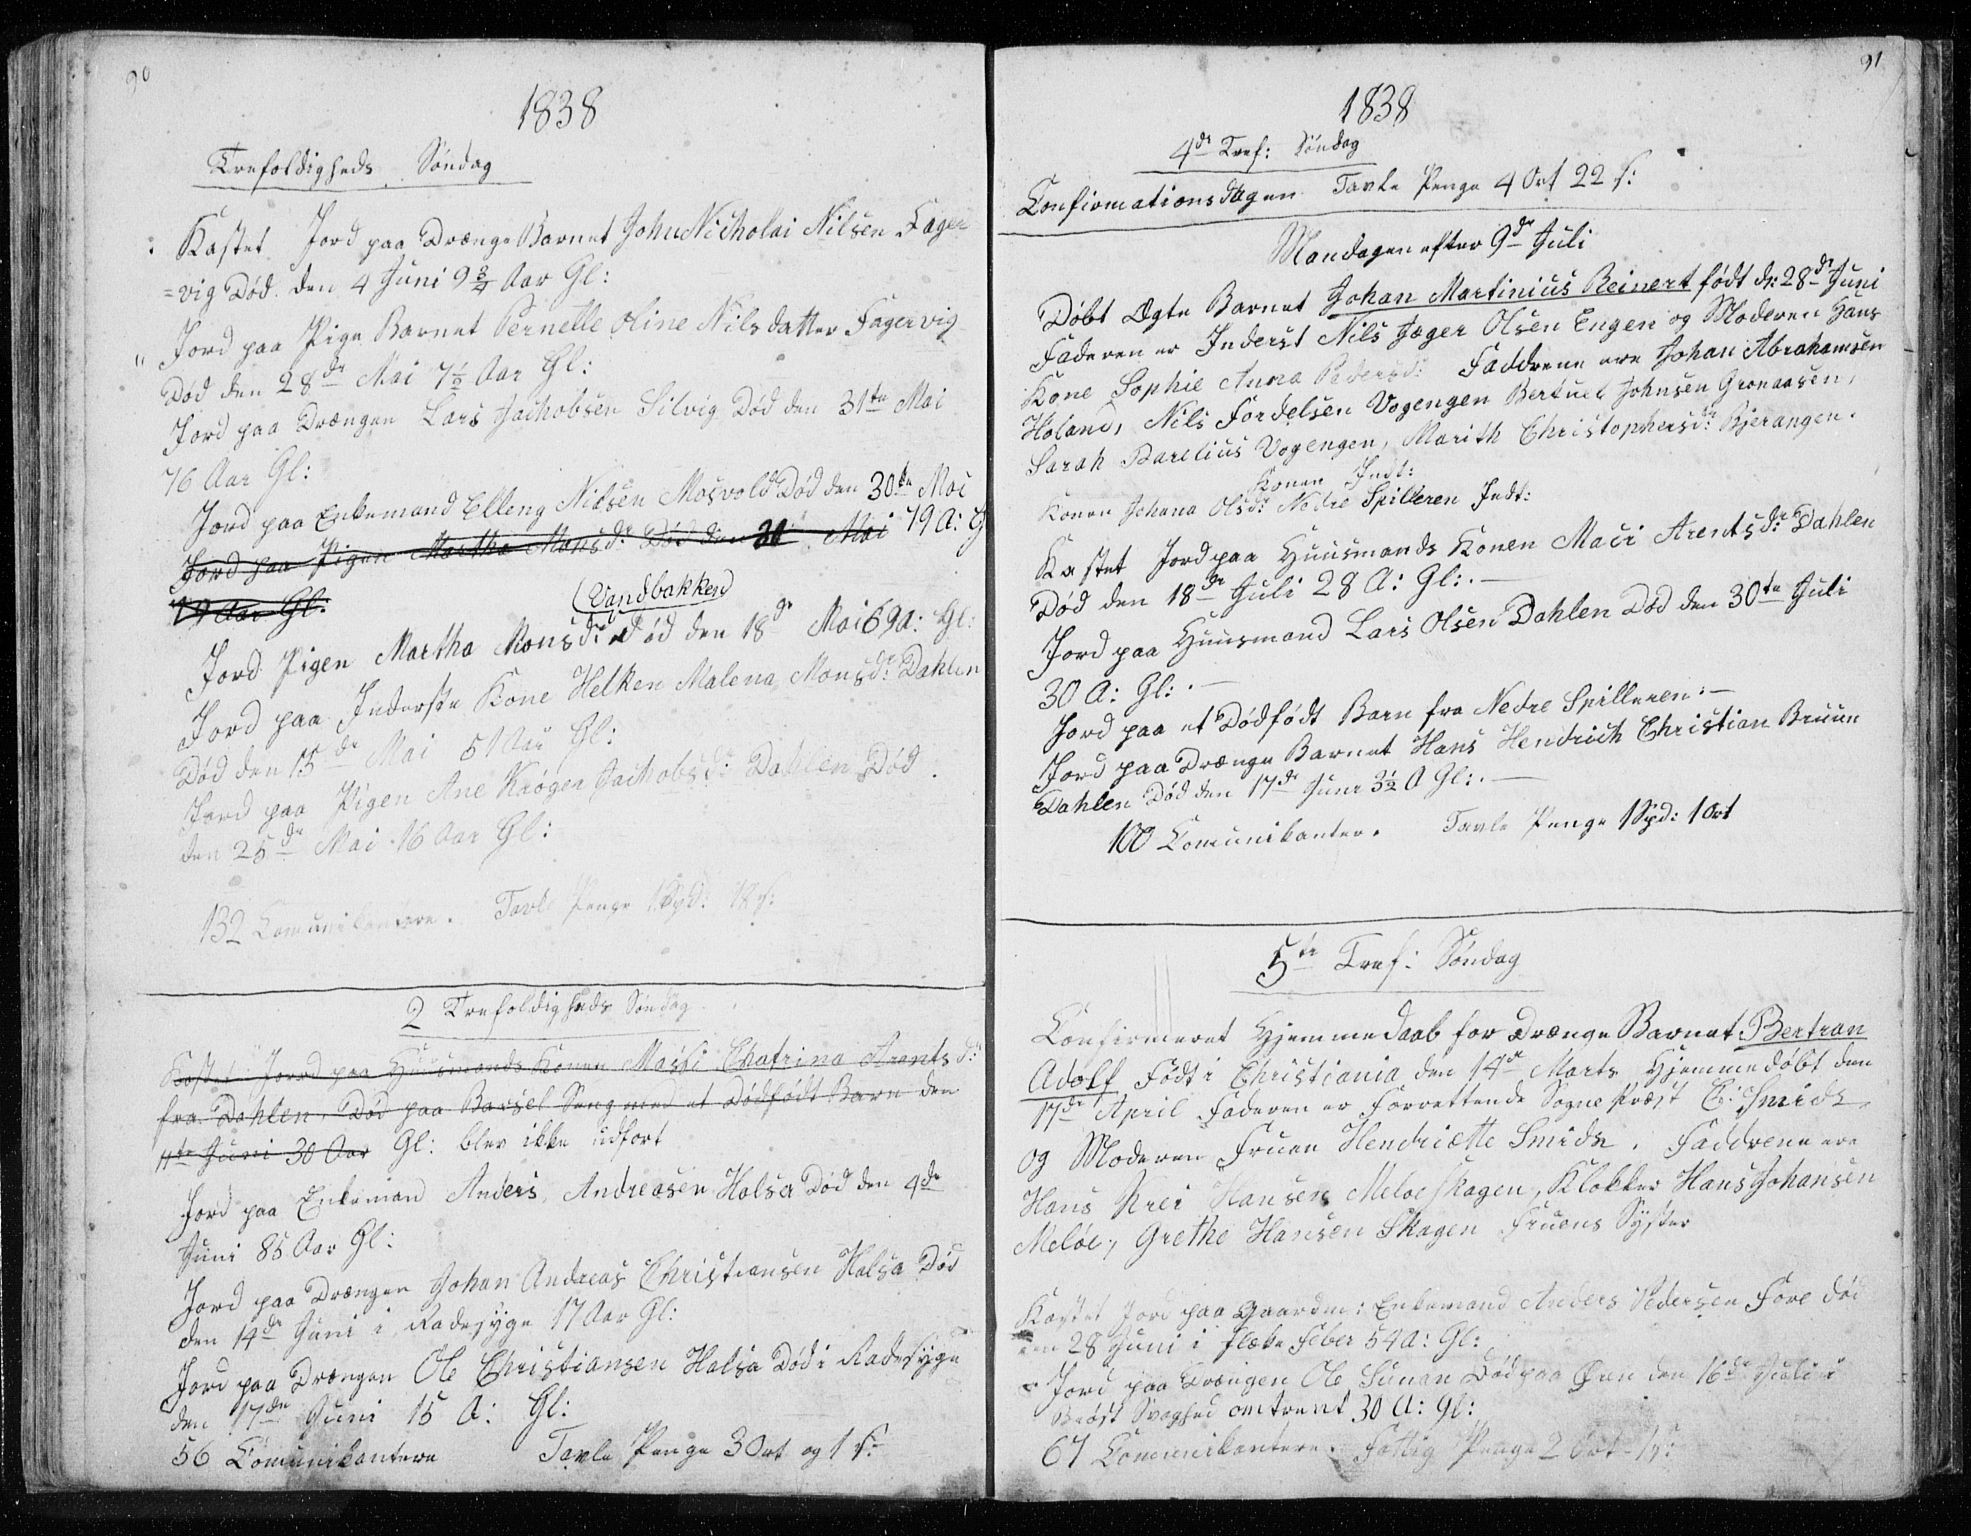 90
1838
Trefoldigheds Søndag
Kastet Jord paa Drænge Barnet John Nicholai Nilsen Fager
=vig Død den 4 Juni 9 3/4 Aar Gl:
" Jord paa Pige Barnet Pernelle Oline Nilsdatter Fagervig
Død den 28de Mai 7 1/2 Aar Gl:
Jord paa Drængen Lars Jachobsen Silvig Død den 31te Mai
76 Aar Gl:
Jord paa Enkemand Elleng Nilsen Mosvold Død den 30te Mai
Jord paa Pigen Martha Monsdr: Død den 30 Mai 79 A: G
79 Aar Gl:
(Vandbakken)
Jord Pigen Martha Monsdr: Død den 18de Mai 69 A: Gl:
Jord paa Inderste Kone Helken Malena Monsdr: Dahlen
Død den 15de Mai 51 Aar Gl:
Jord paa Pigen Ane Krøger Jachobsdr: Dahlen Død
den 25de Mai 16 Aar Gl:
132 Comunikantere. Tavle Penge 1 Spd: 12 s:
2 Trefoldigheds Søndag
Kastet Jord paa Huusmands Konen Massi Chatrina Arentsdr:
fra Dahlen, Død paa Barsel Seng med et Dødfødt Barn den
11te Juni 30 Aar Gl: blev ikke udfort
Jord paa Enkeman Anders Andreasen Halsa Død den 4de
Juni 85 Aar Gl:
Jord paa Drængen Johan Andreas Christiansen Halsa Død
den 14de Juni i Radesyge 17 Aar Gl:
Jord paa Drængen Ole Christiansen Halsa Død i Radesyge
den 17de Juni 15 A: Gl:
56 Comunikantere Tavle Penge 3 Ort og 1 s:
91
1838
4de Tref: Søndag
Confirmationsdagen Tavle Penge 4 Ort 22 s:
Mandagen efter 9de Juli
Døbt Ægte Barnet Johan Martinius Reinert født d: 28de Juni
Faderen er Inderst Nils Jæger Olsen Engen og Moderen Hans
Kone Sophie Anna Pedersd: Faddrene ere Johan Abrahamsen
Holand, Nils Fordelsen Vogengen Bertuel Johnsen Gronaasen,
Sarah Barelius Vogengen, Marith Christophersdr: Bjerangen.
Konen Indl:
Konen Johana Olsdr: Nedre Spilleren Indt:
Kastet Jord paa Huusmands Konen Maci Arentsdr: Dahlen
Død den 18de Juli 28 A: Gl: . —
Jord paa Huusmand Lars Olsen Dahlen Død den 30te Juli
30 A: Gl: . —
Jord paa et Dødfødt Barn fra Nedre Spilleren: —
Jord paa Drænge Barnet Hans Hendrich Christian Bruun
Dahlen Død den 17de Juni 3 1/2 A Gl: . —
100 Comunikanter. Tavle Penge 1 Spd: 1 Ort
5te Tref: Søndag
Confirmeret Hjemmedaab for Drænge Barnet Bertran
Adolf Født i Christiania den 14de Marts Hjemmedøbt den
17de April Faderen er Forrettende Sogne Præst C: Smidt
og Moderen Fruen Hendriette Smidt. Faddrene ere
Hans Krei Hansen Meløeskagen, Klokker Hans Johansen
Meløe, Grethe Hansen Skagen Fruens Syster
Kastet Jord paa Gaardm: Enkemand Anders Pedersen Fore Død
den 28 Juni i flæke Feber 54 A: Gl:
Jord paa Drængen Ole Sunan Død paa Øen den 16de Juli i
Brøst Svaghed omtrent 30 A: Gl:
67 Comunikantere. Fattig Penge 2 Ort